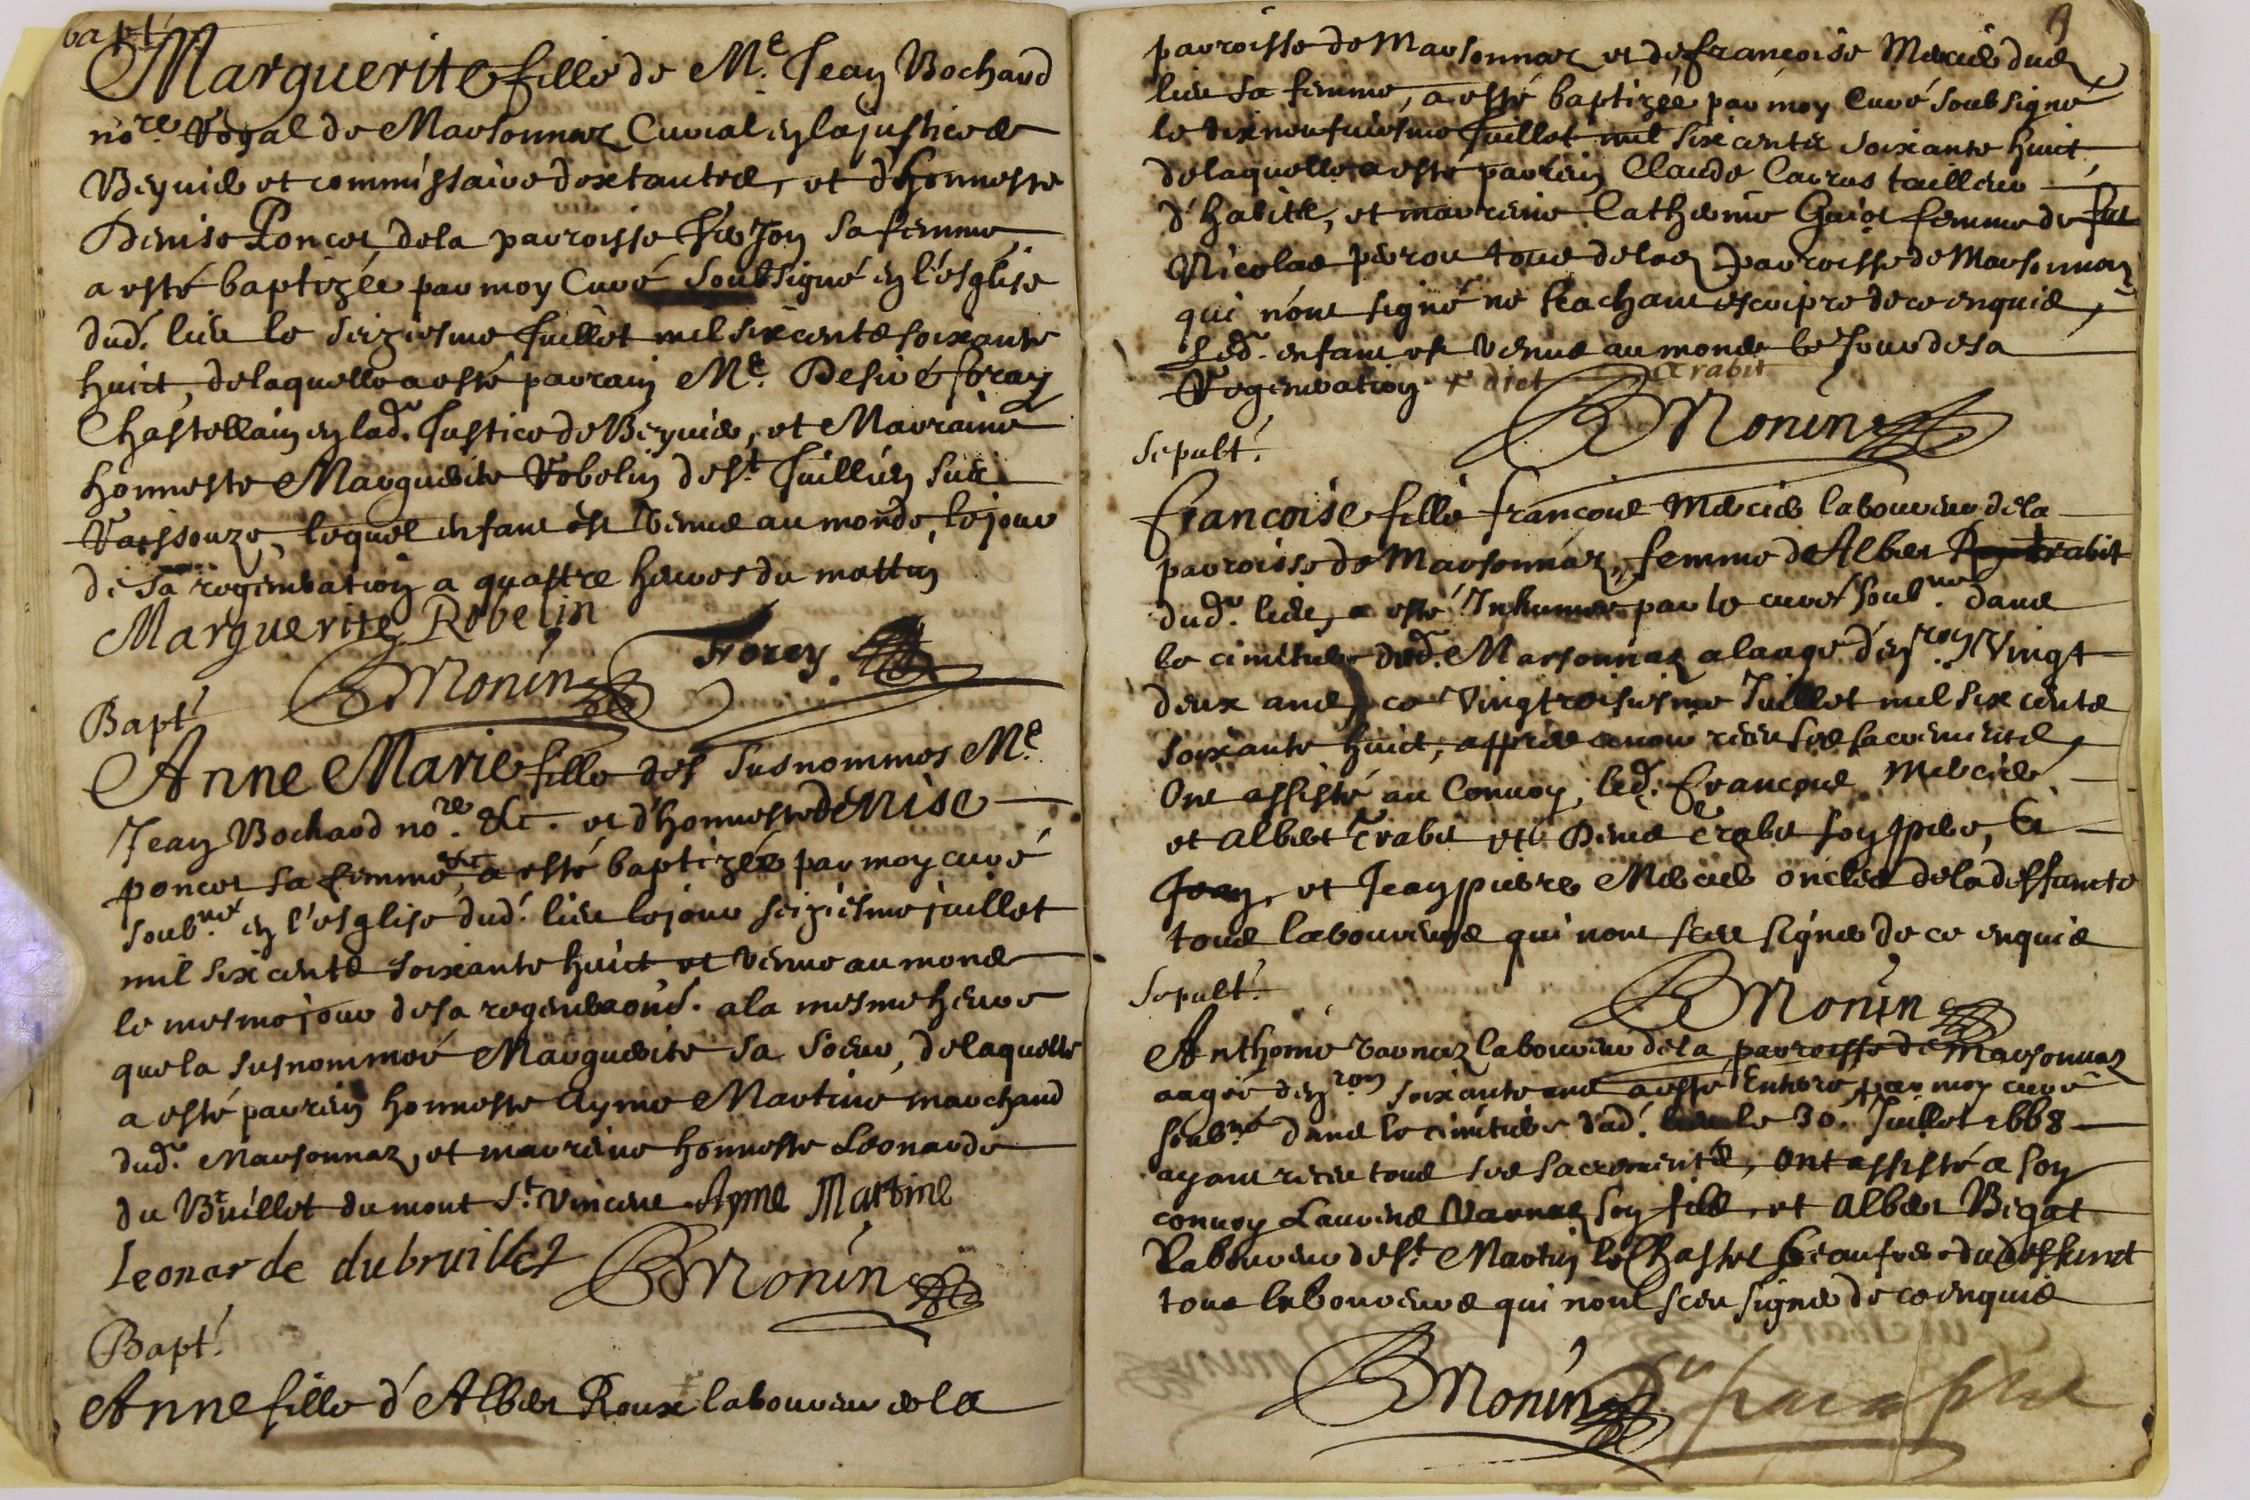 bapt.
Marguerite fille de Me. Jean Bochard
nore. Royal de Marsonnaz Curial en la justice de
Beyvie et commissaire d'extentes, et d'honneste
Denise Poncet de la parroisse sa femme,
a esté baptizée par moy Curé soubsigné en l'esglise
dud. lieu le seiziesme juillet mil six cents soixante
huict, de laquelle a esté parrain Me. Desiré foray
Chastellain en lad. Justice de Beyvie, et Marraine
honneste Marguerite Robelin de St. Jullien sur
Raissouze, lequel enfant est venue au monde, le jour
de sa regeneration a quattre heures du mattin
Marguerite Robelin
BMonin Forey.
Bapt.
Anne Marie fille des susnommes Me.
Jean Bochard nore. &c. et d'honneste Denise
poncet sa femme, &c a esté baptizée par moy curé
soubné. en l'esglise dud. lieu le jour seiziesme juillet
mil six cents soixante huict et venue au monde
le mesme jour de sa regeneraon. a la mesme heure
que la susnommée Marguerite sa soeur, de laquelle
a esté parrein honneste Ayme Martine marchand
dud. Marsonnaz, et marreine honneste Leonarde
du Bruillet du mont St. Vincent Ayme Martine
Leonarde dubruillet BMonin
Bapt.
Anne fille d'Albert Roux laboureur de la
9
parroisse de Marsonnaz et de francoise Mercier dud.
lieu sa femme, a esté baptizée par moy Curé soubsigné
le dix neufuiesme juillet mil six cents soixante huict
de laquelle a esté parrein Claude Carros tailleur
d'habits, et marreine Catherine Guiot femme de
Nicolas perrou tous de lad. parroisse de Marsonnaz
qui n'ont signé ne sachant escripre de ce enquis,
Led. enfant est venue au monde le jour de sa
Regeneration
BMonin
Sepult.
francoise fille francois Mercier laboureur de la
parroisse de Marsonnaz, femme de Albert trabit
dud. lieu, a esté Inhumée par le curé soubné. dans
le cimetiere dud. Marsonnaz a l'aage d'enron. Vingt
deux ans, ce vingtroisiesme Juillet mil six cents
soixante huict, apprès avoir receu ses sacrements,
Ont assisté au Convoy, led. francois Mercier
et albert Trabit et Denis Trabit son pere, Et
Jean, et Jean pierre Mercier oncles de la deffuncte
tous laboureurs qui n'ont sceu signer de ce enquis
BMonin
Sepult.
Anthoine varnaz laboureur de la parroisse de Marsonnaz
aagé d'enron. soixante ans a esté Enterré par moy curé
soubné. dans le cimetiere dud. lieu le 30. Juillet 1668
ayant receu tous ses sacrements, ont assisté a son
convoy Laurens Varnaz son fils, et albert Bigat
Laboureur de St. Martin le Chastel beaufrere du deffunct
tous laboureurs qui n'ont sceu signer de ce enquis
BMonin paraphe